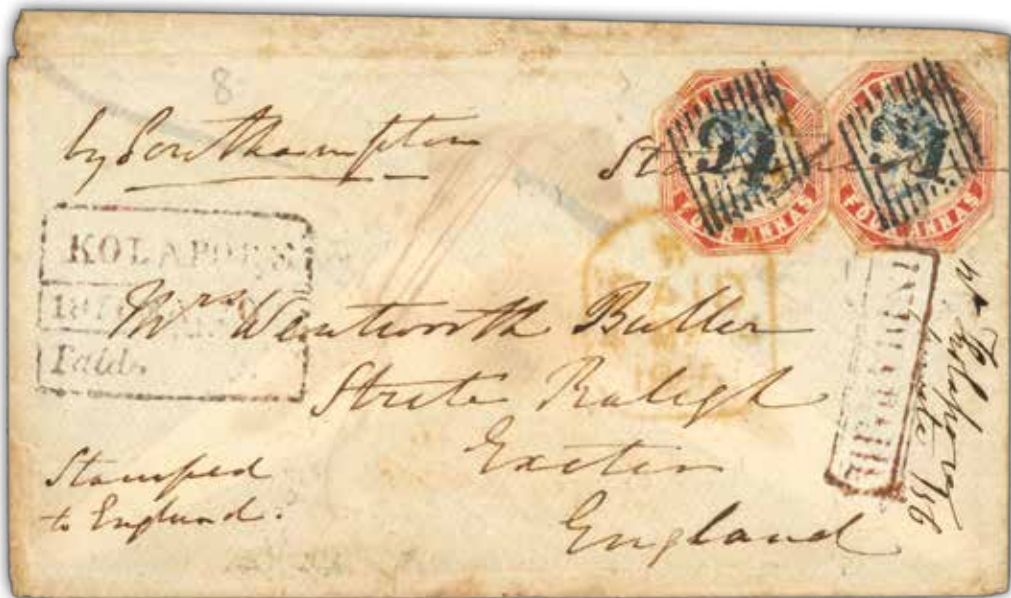 8
by Southampton
Stamped
24
24
FOUR ANNAS
FOUR ANNAS
KOLAPORE
Paid.
Mrs Wentworth Buller
Strete Raleigh
Exeter
England
Stamped
to England.
INDIA PAID